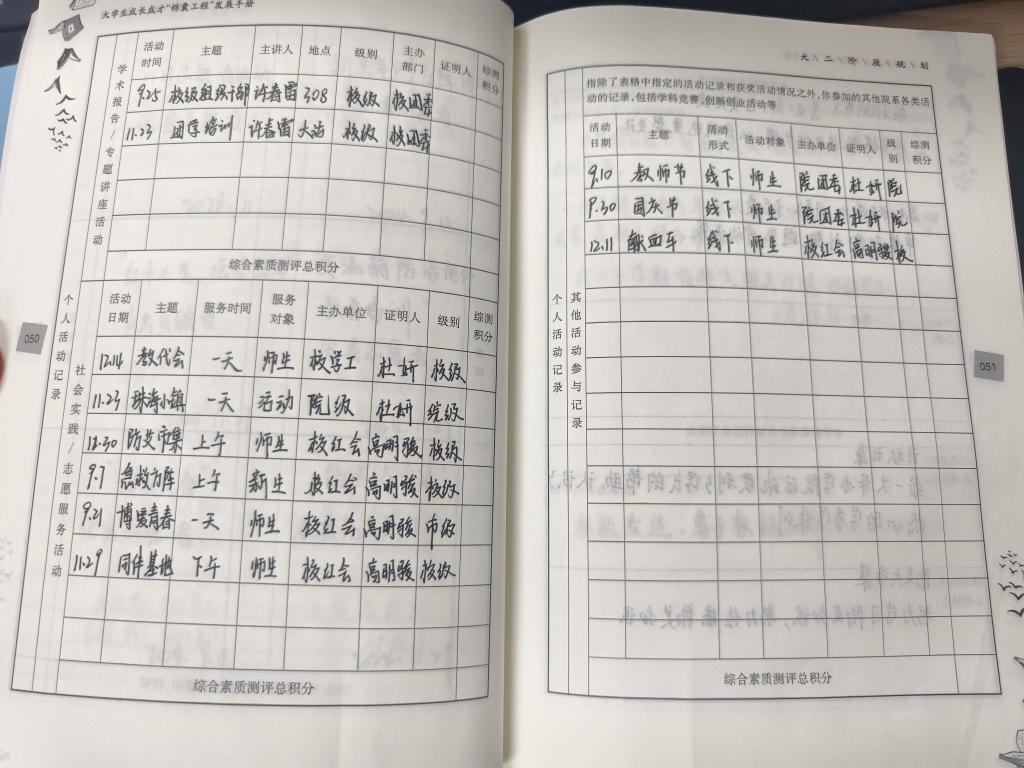 大学生成长成才“锦囊工程”发展手册
学术报告/专题讲座活动
活动时间 主题 主讲人 地点 级别 主办部门 证明人 综测积分
9.25 校级组织干部 许春雷 308 校级 校团委
11.23 团学培训 许春雷 大活 校级 校团委
综合素质测评总积分
个人活动记录
社会实践/志愿服务活动
活动日期 主题 服务时间 服务对象 主办单位 证明人 级别 综测积分
12.14 教代会 一天 师生 校学工 杜妍 校级
11.23 珠海小镇 一天 活动 院级 杜妍 院级
12.30 防艾市集 上午 师生 校红会 高明骏 校级
9.7 急救方阵 上午 新生 校红会 高明骏 校级
9.21 博爱青春 一天 师生 校红会 高明骏 市级
11.29 同伴基地 下午 师生 校红会 高明骏 校级
综合素质测评总积分
050
大二阶段规划
指除了表格中指定的活动记录和获奖活动情况之外,你参加的其他院系各类活
动的记录,包括学科竞赛、创新创业活动等
个人活动记录
其他活动参与记录
活动日期 主题 活动形式 活动对象 主办单位 证明人 级别 综测积分
9.10 教师节 线下 师生 院团委 杜妍 院
9.30 国庆节 线下 师生 院团委 杜妍 院
12.11 献血车 线下 师生 校红会 高明骏 校
综合素质测评总积分
051